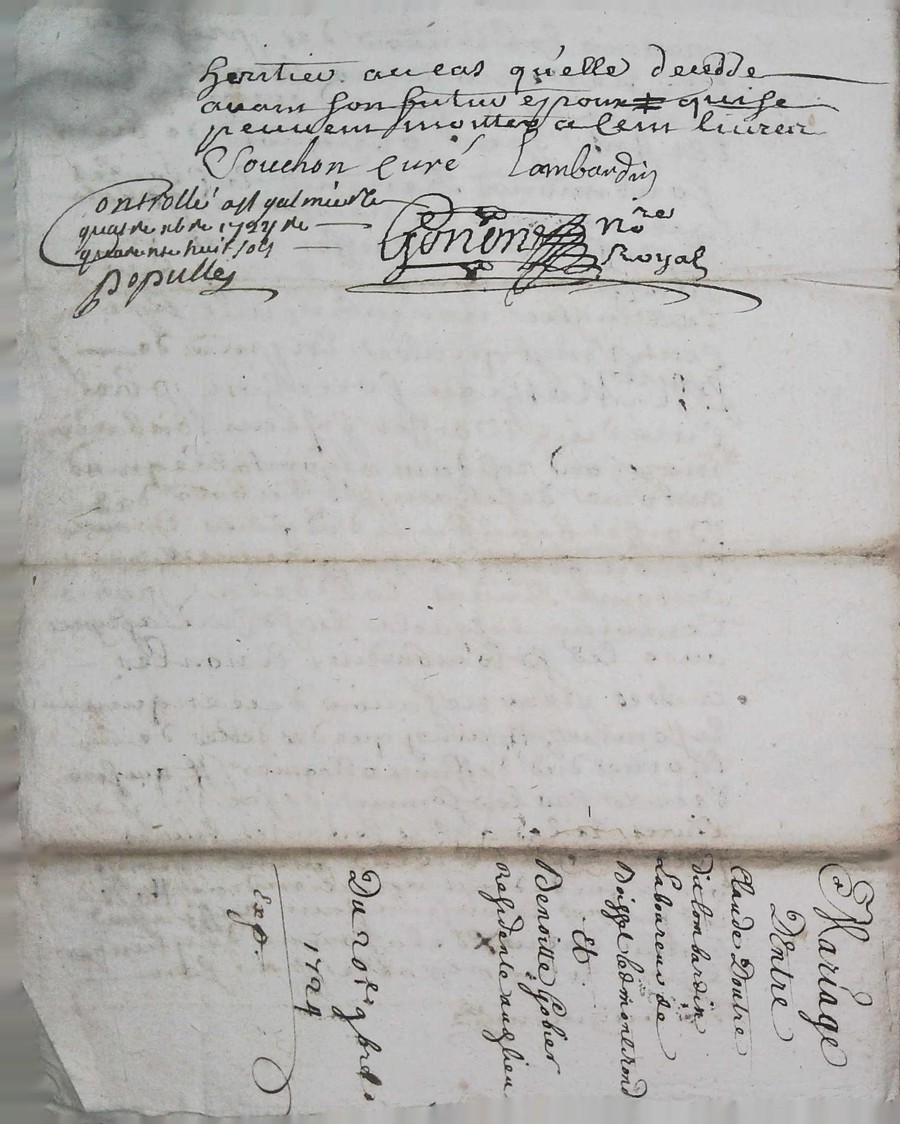 heritier au cas qu'elle decedde
avant son futur epoux qui se
peuvent monter a cent livres
Souchon curé Lombardin
Controllé a st galmier le
quatre xbre 1724 re
quarente huit sols
populle
Gonon nre
Royal
Mariage
Dentre
Claude Doutre
dit lombardin
Laboureur de
Boisset
Et
Benoitte Gobier
Residente au lieu
Du
1724
Exp.